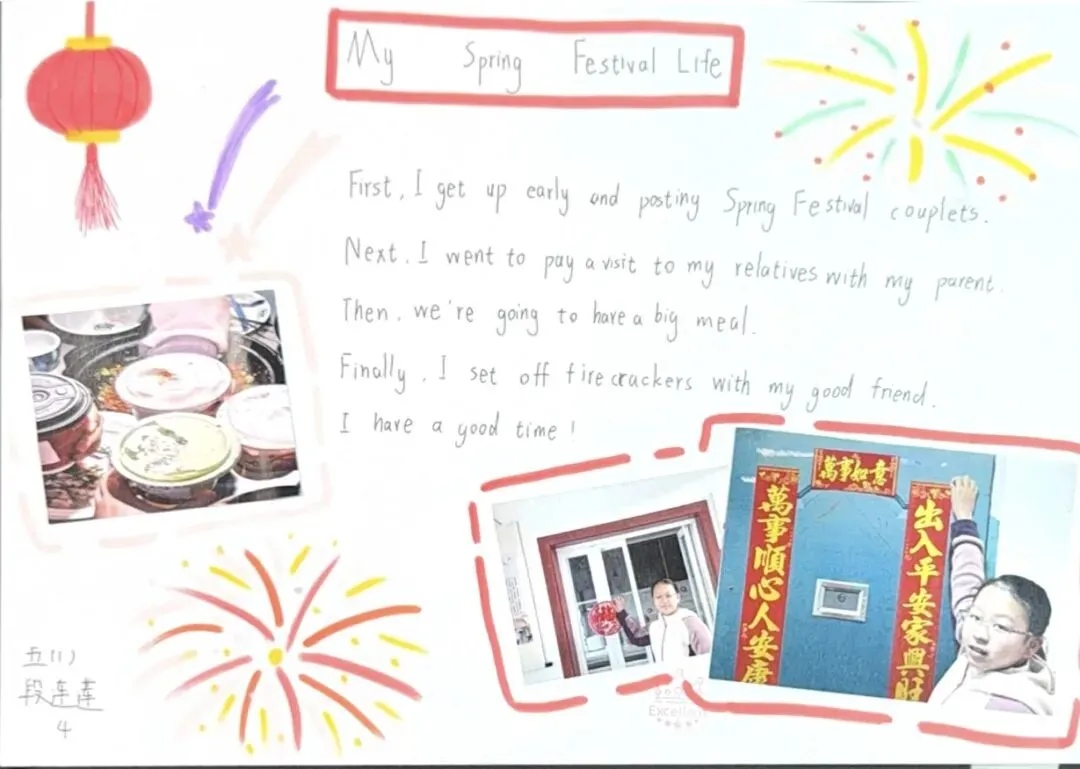 My Spring Festival Life
First, I get up early and posting Spring Festival couplets.
Next, I went to pay a visit to my relatives with my parent.
Then, we're going to have a big meal.
Finally, I set off firecrackers with my good friend.
I have a good time!
萬事如意
萬事順心人安康
出入平安家興旺
6
Excellent
五(1)
段连莲
4